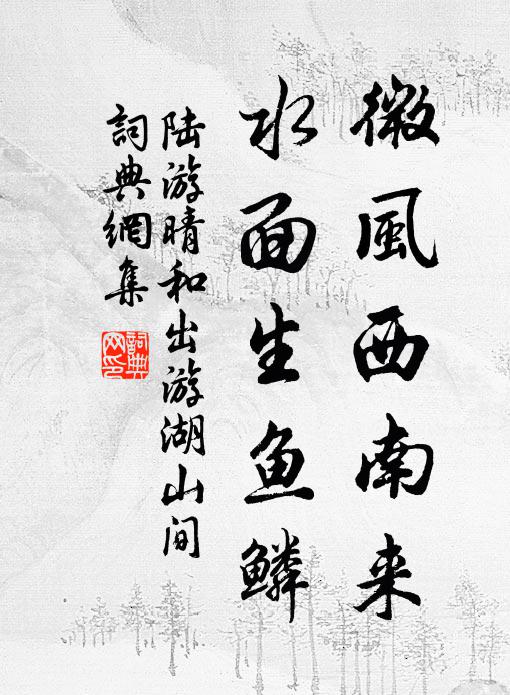 微風西南来
水面生鱼鳞
陆游晴和出游湖山间
詞典網集
詞典网印